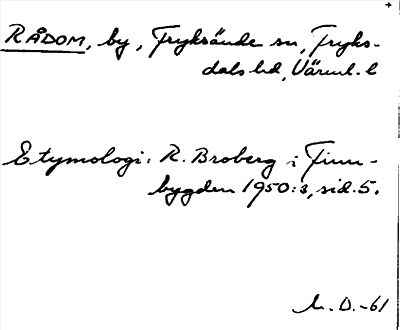 RÅDOM, by, Fryksände sn, Fryks-
dals hd, Värml. l
Etymologi: R. Broberg i Finn-
bygden 1950:3, sid. 5.
D. -61